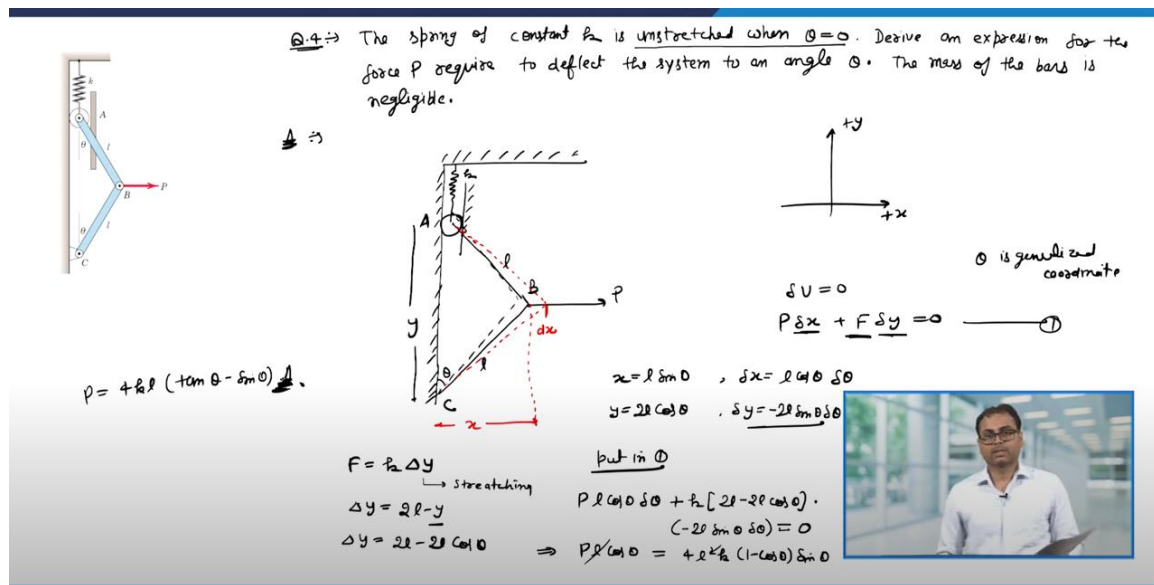 Q.4 ⇒ The spring of constant k is unstretched when θ=0. Derive an expression for the
force P require to deflect the system to an angle θ. The mass of the bars is
negligible.
k
A
θ
l
B
P
θ
l
C
A ⇒
k
A
l
B
P
dx
y
θ
l
C
x
+y
+x
θ is generalized
coordinate
δU = 0
Pδx + Fδy = 0 ——— ①
P = 4kl (tanθ - sinθ) A.
x = l sinθ , δx = l cosθ δθ
y = 2l cosθ , δy = -2l sinθ δθ
F = k Δy
↳ streatching
Δy = 2l - y
Δy = 2l - 2l cosθ
put in ①
P l cosθ δθ + k [2l - 2l cosθ] .
(-2l sinθ δθ) = 0
⇒ P l cosθ = 4 l² k (1-cosθ) sinθ